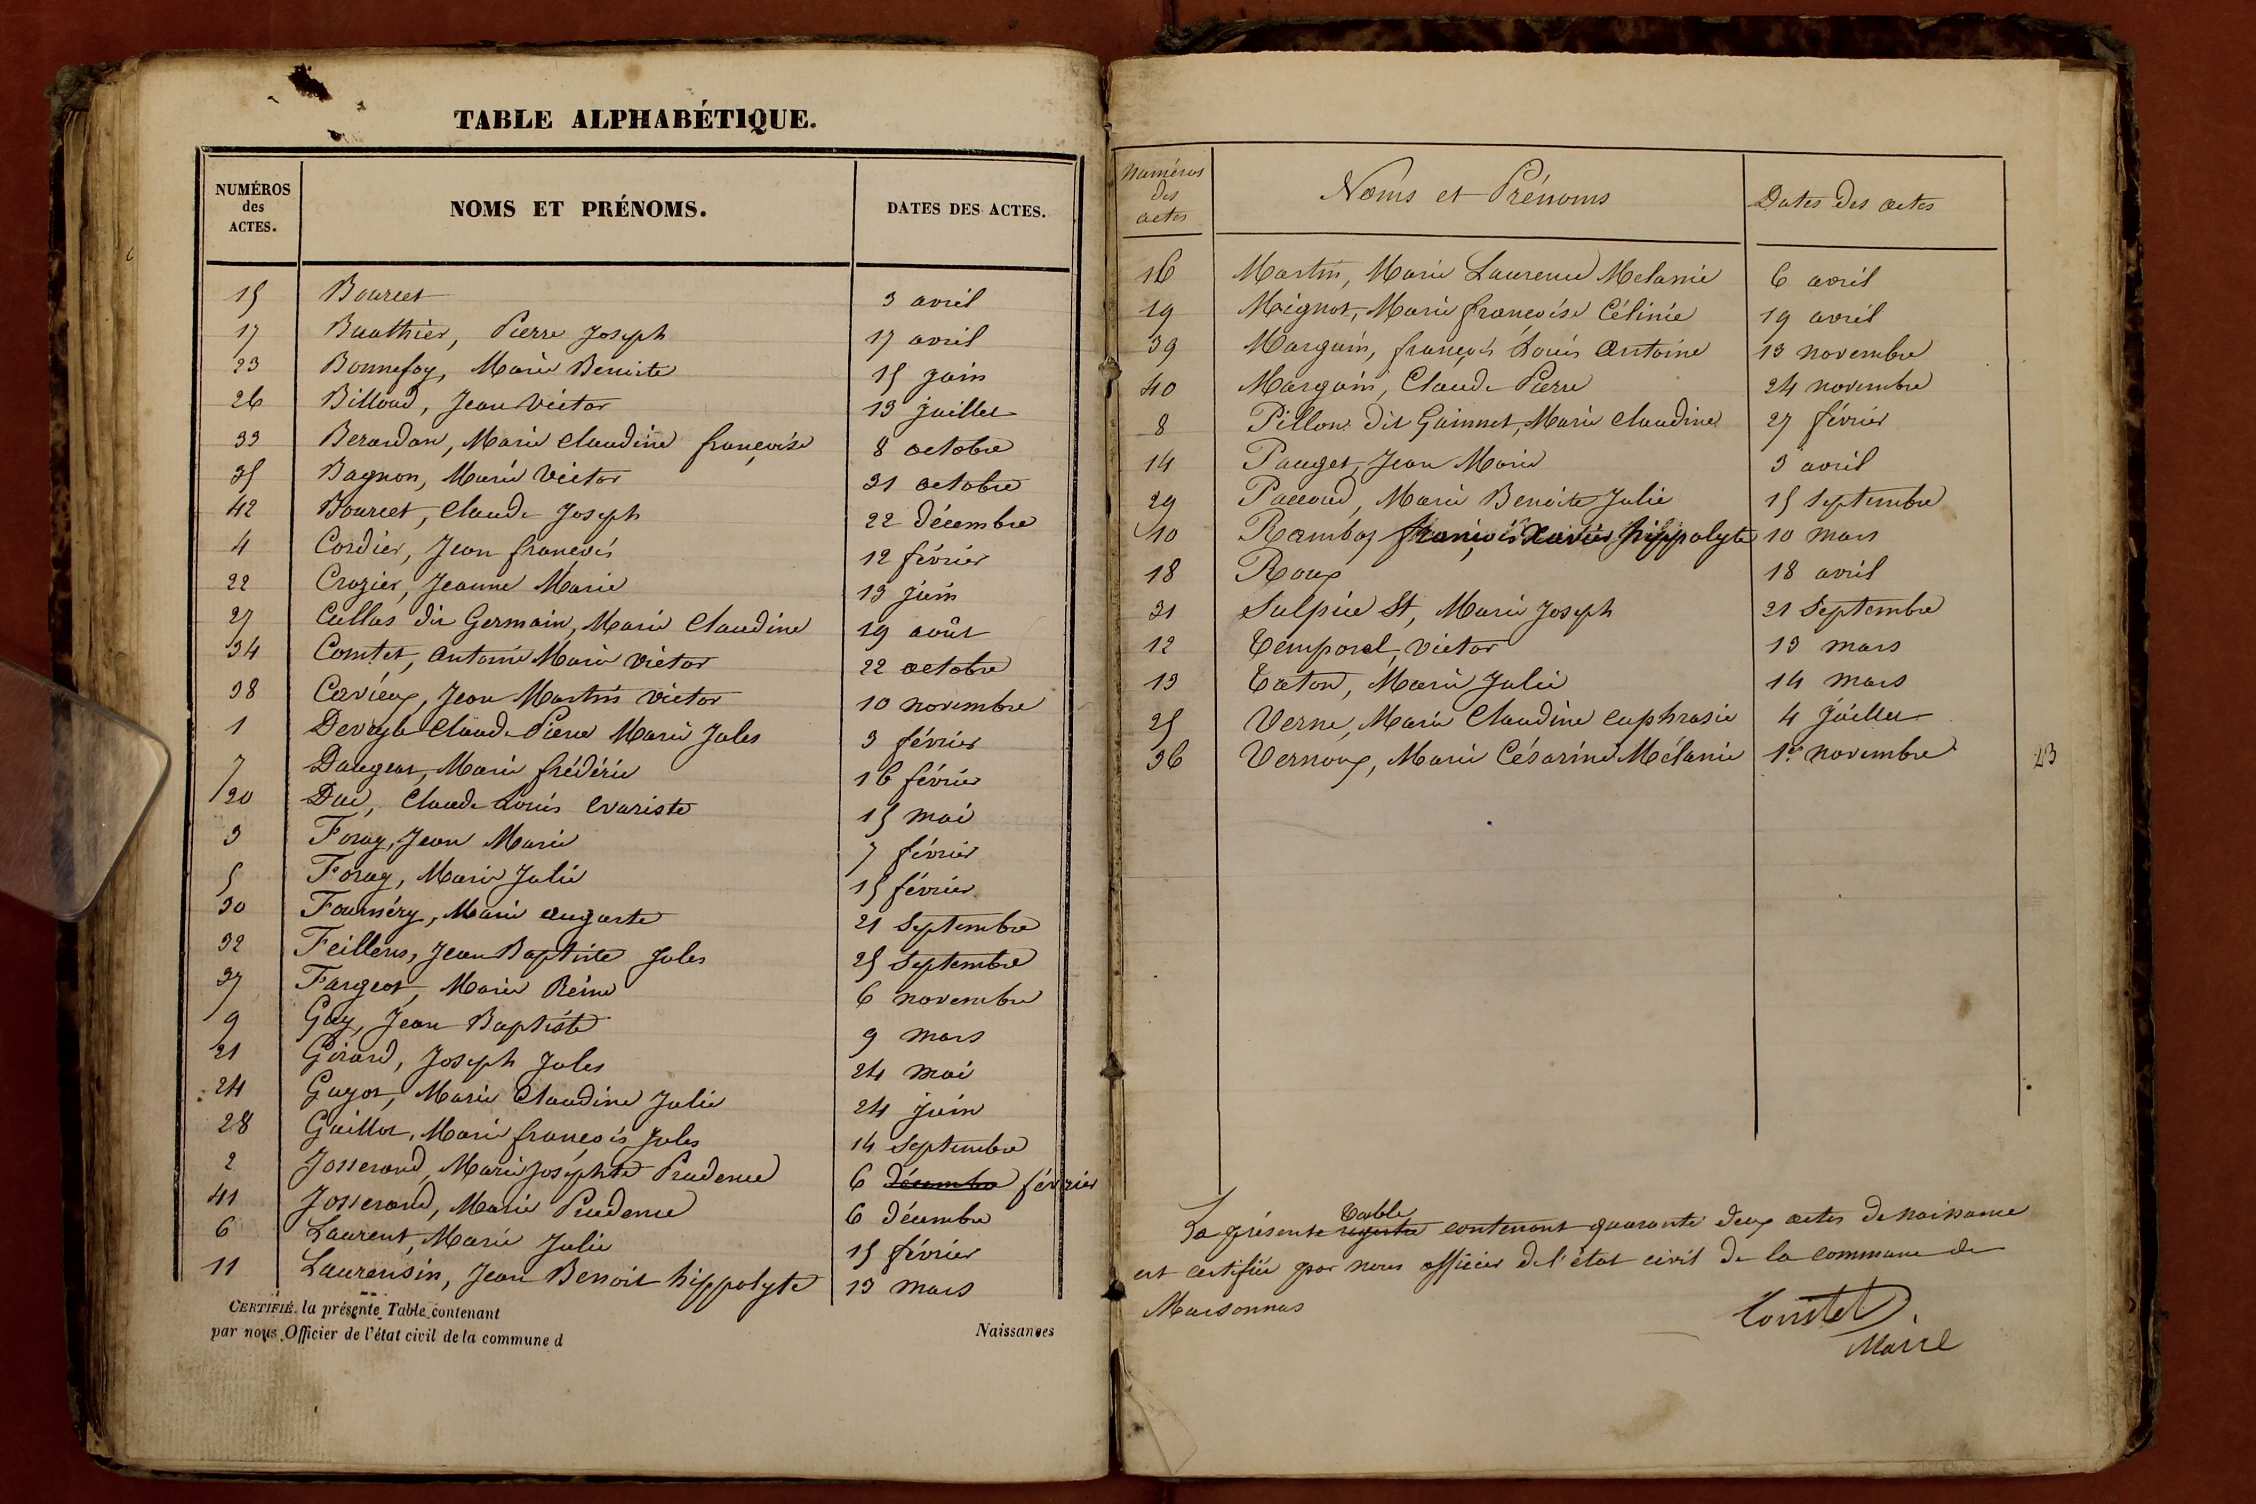 TABLE ALPHABÉTIQUE.
NUMÉROS des ACTES. NOMS ET PRÉNOMS. DATES DES ACTES.
15 Bourcet 3 avril
17 Buathier, Pierre Joseph 17 avril
23 Bonnefoy, Marie Benoite 15 juin
26 Billoud, Jean Victor 13 juillet
33 Berardan, Marie Claudine françoise 8 octobre
35 Bagnon, Marie Victor 21 octobre
42 Bourcet, Claude Joseph 22 décembre
4 Cordier, Jean françois 12 février
22 Crozier, Jeanne Marie 13 juin
27 Cullas dit Germain, Marie Claudine 29 août
34 Comtet, antoine Marie Victor 22 octobre
38 Cavieux, Jean Martin Victor 10 novembre
1 Claude Pierre Marie Jules 3 février
7 Daugeat, Marie frédéric 16 février
20 Duc, Claude Louis Evariste 15 mai
3 Foray, Jean Marie 7 février
5 Foray, Marie Julie 15 février
30 Fournéry, Marie auguste 21 septembre
32 Feillens, Jean Baptiste Jules 25 septembre
37 Fargeot, Marie Reine 6 novembre
9 Guy, Jean Baptiste 9 mars
21 Girard, Joseph Jules 24 mai
24 Guyot, Marie Claudine Julie 24 juin
28 Guillot, Marie françois Jules 14 septembre
2 Josserand, Marie Josephte Prudence 6 décembre février
41 Josserand, Marie Prudence 6 décembre
6 Laurent, Marie Julie 15 février
11 Laurensin, Jean Benoit hippolyte 13 mars
CERTIFIÉ, la présente Table contenant
par nous, Officier de l'état civil de la commune d Naissances
Numéros des actes Noms et Prénoms Dates des actes
16 Martin, Marie Laurence Melanie 6 avril
19 Mignot, Marie françoise Célinie 19 avril
39 Marguin, françois Louis antoine 13 novembre
40 Marguin, Claude Pierre 24 novembre
8 Pillon dit Guimet, Marie Claudine 27 février
14 Pauget, Jean Marie 3 avril
29 Paccoud, Marie Benoite Julie 15 septembre
10 Rambaz françois Xavier hippolyte 10 mars
18 Roux 18 avril
31 Sulpice St, Marie Joseph 21 septembre
12 Temporal, Victor 13 mars
13 Taton, Marie Julie 14 mars
25 Verne, Marie Claudine euphrasie 4 juillet
36 Vernoux, Marie Césarine Mélanie 1er novembre
43
table
La présente registre contenant quarante deux actes de naissance
est certifiée par nous officier de l'état civil de la commune de
Marsonnas
Comtet
Maire